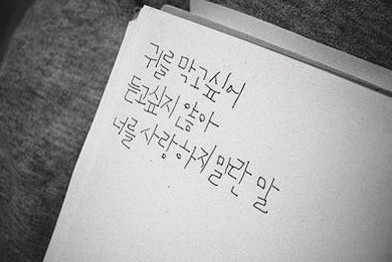 귀를 막고싶어
듣고싶지 않아
너를 사랑하지말란 말